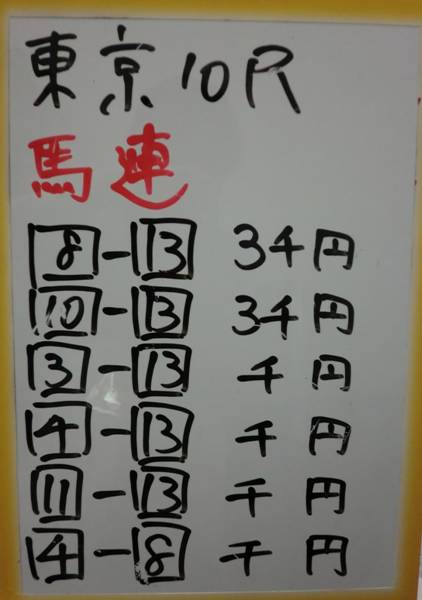 東京10R
馬連
8-13 3千円
10-13 3千円
3-13 千円
4-13 千円
11-13 千円
4-8 千円